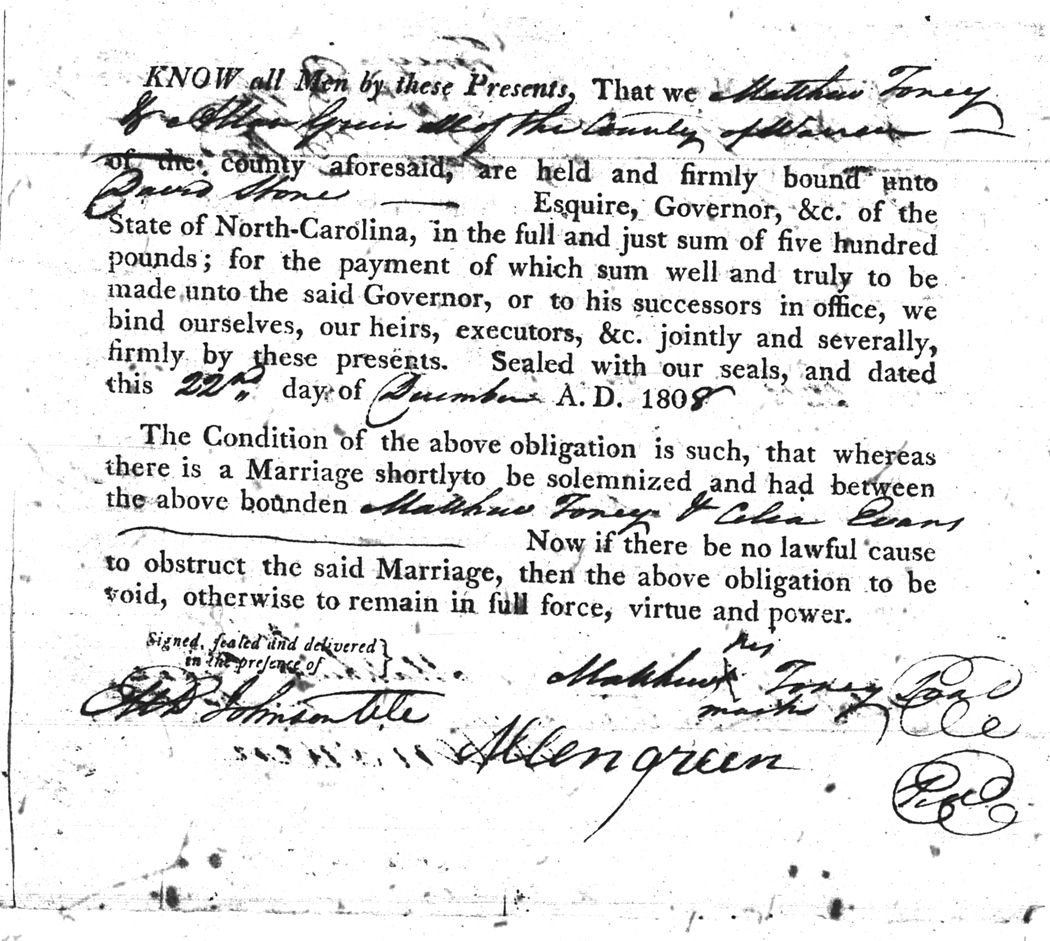 KNOW all Men by these Presents, That we Matthew Toney
& Allen Green all of the County of Warren —
of the county aforesaid, are held and firmly bound unto
David Stone — Esquire, Governor, &c. of the
State of North-Carolina, in the full and just sum of five hundred
pounds; for the payment of which sum well and truly to be
made unto the said Governor, or to his successors in office, we
bind ourselves, our heirs, executors, &c. jointly and severally,
firmly by these presents. Sealed with our seals, and dated
this 22nd day of December A. D. 1808
The Condition of the above obligation is such, that whereas
there is a Marriage shortlyto be solemnized and had between
the above bounden Matthew Toney & Celia Evans
Now if there be no lawful cause
to obstruct the said Marriage, then the above obligation to be
void, otherwise to remain in full force, virtue and power.
Signed, sealed and delivered }
in the presence of
his
Matthew X Toney Seal
mark
Johnson
Allen green
Seal